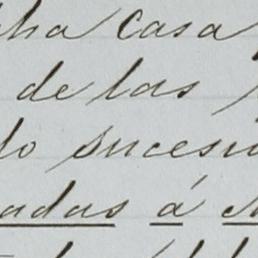 cha casa
de las
do sucesi
adas á